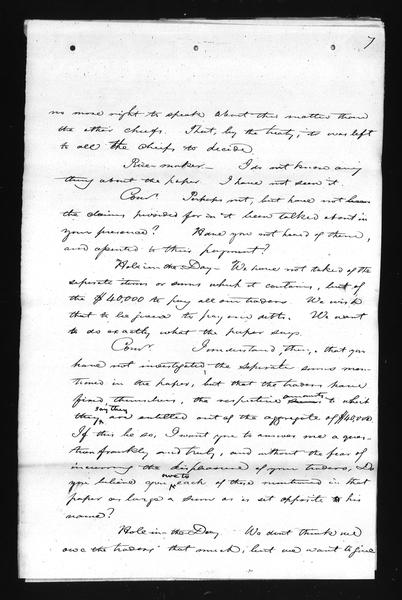 7
no more right to speak about this matter than
the other chiefs. That, by the treaty, it was left
to all the chiefs to decide
Rice-maker — I do not know any
thing about the paper. I have not seen it.
Comr. Perhaps not, but have not
the claims provided for in it been talked about in
your presence? Have you not heard of them,
and assented to their payment?
Hole-in-the-Day — We have not talked of the
seperate items or sums which it contains, but of
the $40,000 to pay all our traders. We wish
that to be given to pay our debts. We want
to do exactly what the paper says.
Comr. I understand, then, that you
have not investigated the seperate sums men-
tioned in the paper, but that the traders have
fixed, themselves, the respective amounts to which
they say they are entitled out of the aggregate of $40,000
If this be so, I want you to answer me a ques-
tion frankly and truly, and without the fear of
incurring the displeasure of your traders, Do
you believe you owe to each of those mentioned in that
paper as large a sum as is set opposite to his
name?
Hole-in-the-Day We don't think we
owe the traders that much, but we want to give